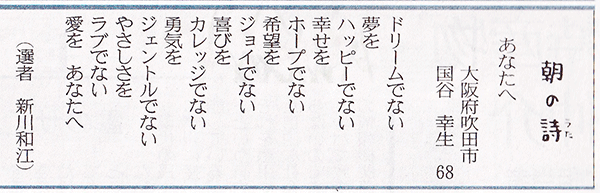 朝の詩
うた
あなたへ
大阪府吹田市
国谷 幸生 68
ドリームでない
夢を
ハッピーでない
幸せを
ホープでない
希望を
ジョイでない
喜びを
カレッジでない
勇気を
ジェントルでない
やさしさを
ラブでない
愛を あなたへ
(選者 新川和江)